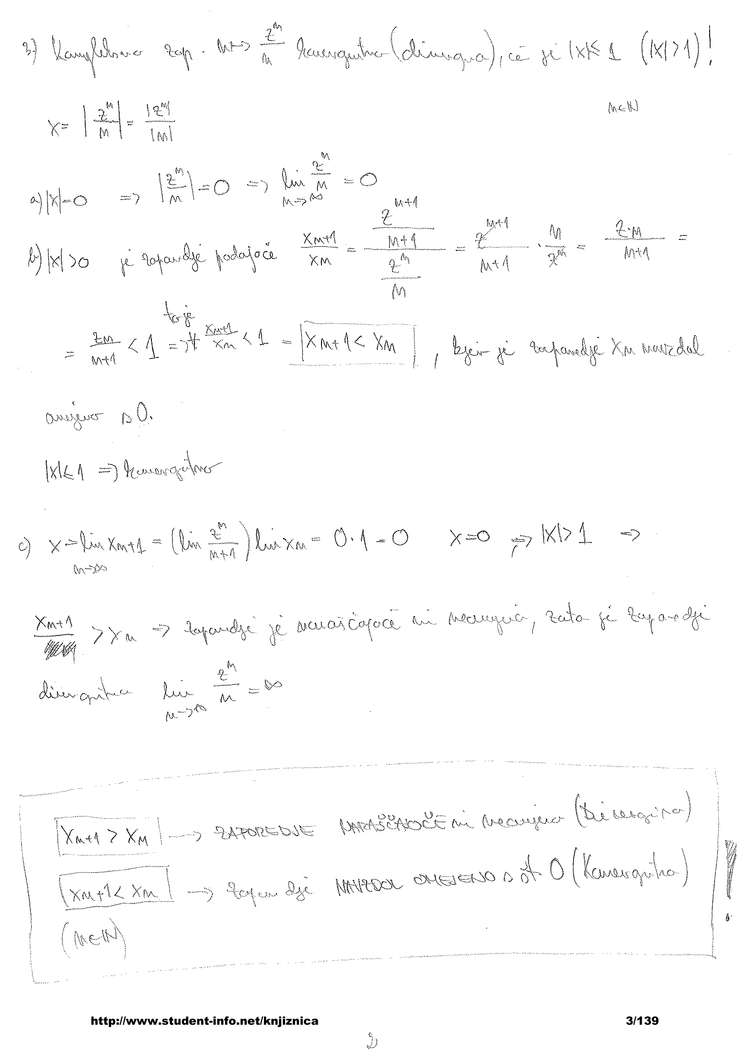 3.) Kompleksno zap. n↦ z^n/n konvergentno (divergira), če je |x|≤1 (|x|>1)!
n∈ℕ
x = |z^n/n| = |z^n|/|n|
a) |x|=0 => |z^n/n| = 0 => lim n→∞ z^n/n = 0
b) |x|>0 je zaporedje padajoče x_{n+1}/x_n = (z^{n+1}/(n+1))/(z^n/n) = z^{n+1}/(n+1) · n/z^n = z·n/(n+1) =
= zn/(n+1) < 1 => torej x_{n+1}/x_n < 1 = x_{n+1} < x_n , kjer je zaporedje x_n navzdol
omejeno z 0.
|x|≤1 => konvergentno
c) x = lim n→∞ x_{n+1} = (lim z^n/(n+1)) lim x_n = 0·1 = 0 x=0 => |x|>1 =>
x_{n+1} > x_n => zaporedje je naraščajoče ni neomejeno, zato je zaporedje
divergentno lim n→∞ z^n/n = ∞
x_{n+1} > x_n → ZAPOREDJE NARAŠČAJOČE ni neomejeno (Divergira)
x_{n+1} < x_n → zaporedje NAVZDOL OMEJENO z 0 (Konvergentno) !
(n∈ℕ)
http://www.student-info.net/knjiznica 3/139
2